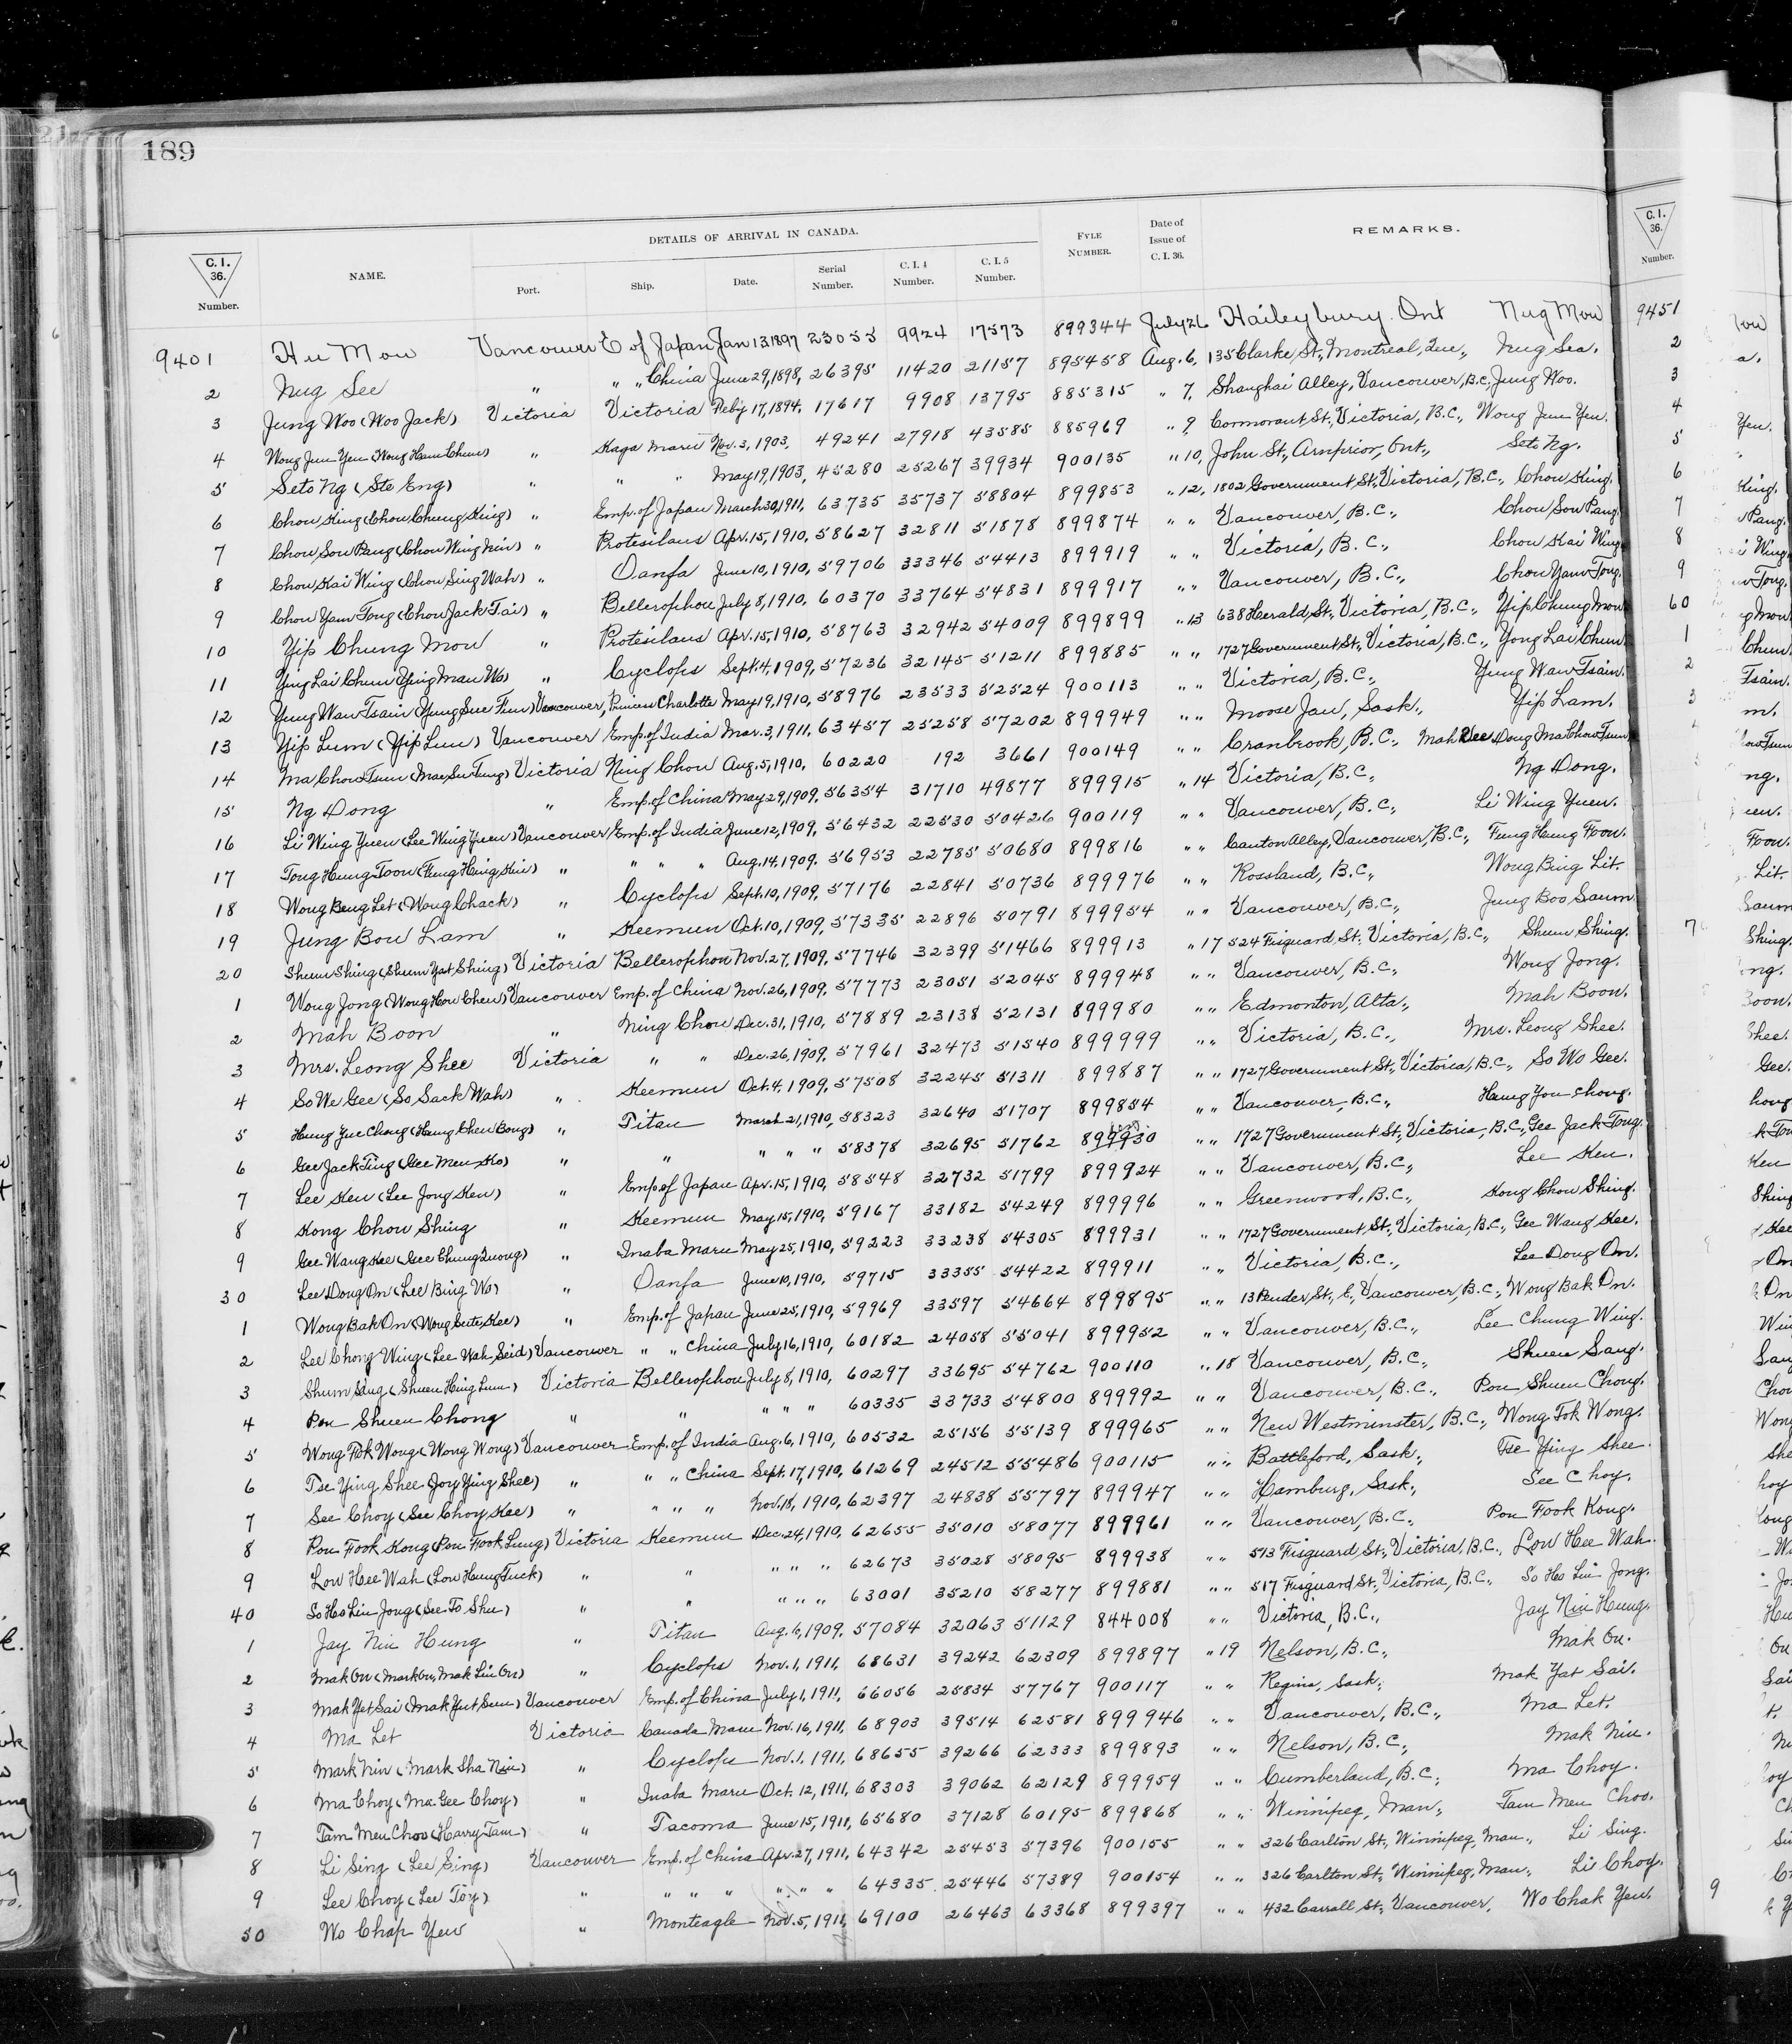 189
DETAILS OF ARRIVAL IN CANADA.
C. I. 36. Number. NAME. Port. Ship. Date. Serial Number. C. I. 4 Number. C. I. 5 Number. FYLE NUMBER. Date of Issue of C. I. 36. REMARKS. C. I. 36. Number.
9401 Hu Mou Vancouver E of Japan Jan 13, 1897 23055 9924 17573 899344 July 26 Haileybury. Ont Nug Mou 9451
2 Nug See " " " China June 29, 1898, 26395 11420 21157 895458 Aug. 6, 135 Clarke St., Montreal, Que., Nug Sea. 2
3 Jung Woo (Woo Jack) Victoria Victoria Feb'y 17, 1894, 17617 9908 13795 885315 " 7, Shanghai Alley, Vancouver, B.C., Jung Woo. 3
4 Wong Jun Yen (Wong Ham Chun) " Kaga Maru Nov. 3, 1903, 49241 27918 43585 885969 " 9, Cormorant St., Victoria, B.C., Wong Jun Yen. 4
5 Seto Ng (Ste Eng) " " " May 19, 1903, 45280 25267 39934 900135 " 10, John St., Arnprior, Ont., Seto Ng. 5
6 Chou King (Chou Chung King) " Emp. of Japan March 30, 1911, 63735 35737 58804 899853 " 12, 1802 Government St., Victoria, B.C., Chou King. 6
7 Chou Sou Pang (Chou Wing Nin) " Protesilaus Apr. 15, 1910, 58627 32811 51878 899874 " " Vancouver, B.C., Chou Sou Pang 7
8 Chou Kai Wing (Chou Sing Wah) " Oanfa June 10, 1910, 59706 33346 54413 899919 " " Victoria, B.C., Chou Kai Wing 8
9 Chou Yam Tong (Chou Jack Tai) " Bellerophon July 8, 1910, 60370 33764 54831 899917 " " Vancouver, B.C., Chou Yam Tong. 9
10 Yip Chung Mou " Protesilaus Apr. 15, 1910, 58763 32942 54009 899899 " 13 638 Herald St., Victoria, B.C., Yip Chung Mou 60
11 Ying Lai Chun (Ying Man Wo) " Cyclops Sept. 4, 1909, 57236 32145 51211 899885 " " 1727 Government St., Victoria, B.C., Yong Lai Chun 1
12 Yung Wan Tsain (Yung Sue Fun) Vancouver, Princess Charlotte May 19, 1910, 58976 23533 52524 900113 " " Victoria, B.C., Yung Wan Tsain. 2
13 Yip Lum (Yip Lun) Vancouver Emp. of India Mar. 3, 1911, 63457 25258 57202 899949 " " Moose Jaw, Sask., Yip Lam. 3
14 Ma Chow Tsun (Mae Su Tung) Victoria Ning Chow Aug. 5, 1910, 60220 192 3661 900149 " " Cranbrook, B.C., Mah Dong Ma Chow Tsun
15 Ng Dong " Emp. of China May 29, 1909, 56354 31710 49877 899915 " 14 Victoria, B.C., Ng Dong.
16 Li Wing Yuen (Lee Wing Yuen) Vancouver Emp. of India June 12, 1909, 56432 22530 50426 900119 " " Vancouver, B.C., Li Wing Yuen.
17 Tong Hung Toon (Fung Hing Kin) " " " " Aug. 14, 1909, 56953 22785 50680 899816 " " Canton Alley, Vancouver, B.C., Fung Hung Foon.
18 Wong Beng Let (Wong Chack) " Cyclops Sept. 10, 1909, 57176 22841 50736 899976 " " Rossland, B.C., Wong Bing Lit.
19 Jung Bow Lam " Keemun Oct. 10, 1909, 57335 22896 50791 899954 " " Vancouver, B.C., Jung Boo Saum
20 Shum Shing (Shum Yat Shing) Victoria Bellerophon Nov. 27, 1909, 57746 32399 51466 899913 " 17 524 Fisguard St., Victoria, B.C., Shum Shing. 7
1 Wong Jong (Wong Hou Chew) Vancouver Emp. of China Nov. 26, 1909, 57773 23051 52045 899948 " " Vancouver, B.C., Wong Jong.
2 Mah Boon " Ning Chow Dec. 31, 1910, 57889 23138 52131 899980 " " Edmonton, Alta., Mah Boon.
3 Mrs. Leong Shee Victoria " " Dec. 26, 1909, 57961 32473 51540 899999 " " Victoria, B.C., Mrs. Leong Shee.
4 So We Gee (So Sack Wah) " Keemun Oct. 4, 1909, 57508 32245 51311 899887 " " 1727 Government St., Victoria, B.C., So Wo Gee.
5 Hung Yue Chong (Hung Chen Bong) " Titan March 21, 1910, 58323 32640 51707 899854 " " Vancouver, B.C., Hung You Chong.
6 Gee Jack Ting (Gee Men Ko) " " " " " 58378 32695 51762 899930 " " 1727 Government St., Victoria, B.C., Gee Jack Tong.
7 Lee Ken (Lee Jong Ken) " Emp. of Japan Apr. 15, 1910, 58548 32732 51799 899924 " " Vancouver, B.C., Lee Ken.
8 Kong Chou Shing " Keemun May 15, 1910, 59167 33182 54249 899996 " " Greenwood, B.C., Kong Chou Shing.
9 Gee Wang Kee (Gee Chung Quong) " Inaba Maru May 25, 1910, 59223 33238 54305 899931 " " 1727 Government St., Victoria, B.C., Gee Wang Kee.
30 Lee Dong On (Lee Bing Wo) " Oanfa June 10, 1910, 59715 33355 54422 899911 " " Victoria, B.C., Lee Dong On.
1 Wong Bak On (Wong Cute Kee) " Emp. of Japan June 25, 1910, 59969 33597 54664 899895 " " 13 Pender St., E., Vancouver, B.C., Wong Bak On.
2 Lee Chong Wing (Lee Wah Seid) Vancouver " " China July 16, 1910, 60182 24058 55041 899952 " " Vancouver, B.C., Lee Chung Wing.
3 Shum Sang (Shuen Hing Lum) Victoria Bellerophon July 8, 1910, 60297 33695 54762 900110 " 18 Vancouver, B.C., Shuen Sang.
4 Pon Shuen Chong " " " " " 60335 33733 54800 899992 " " Vancouver, B.C., Pon Shuen Chong.
5 Wong Fok Wong (Wong Wong) Vancouver Emp. of India Aug. 6, 1910, 60532 25156 55139 899965 " " New Westminster, B.C., Wong Fok Wong.
6 Tse Ying Shee (Joy Ying Shee) " " " China Sept. 17, 1910, 61269 24512 55486 900115 " " Battleford, Sask., Tse Ying Shee.
7 See Choy (See Choy Kee) " " " " Nov. 18, 1910, 62397 24838 55797 899947 " " Hamburg, Sask., See Choy.
8 Pon Fook Kong (Pon Fook Lung) Victoria Keemun Dec. 24, 1910, 62655 35010 58077 899961 " " Vancouver, B.C., Pon Fook Kong.
9 Low Hee Wah (Low Hung Tuck) " " " " " 62673 35028 58095 899938 " " 513 Fisguard St., Victoria, B.C., Low Hee Wah.
40 So Ho Lin Jong (See To Shu) " " " " " 63001 35210 58277 899881 " " 517 Fisguard St., Victoria, B.C., So Ho Lin Jong.
1 Jay Nin Hung " Titan Aug. 6, 1909, 57084 32063 51129 844008 " " Victoria, B.C., Jay Nin Hung.
2 Mak On (Mark On, Mak Lin On) " Cyclops Nov. 1, 1911, 68631 39242 62309 899897 " 19 Nelson, B.C., Mak On.
3 Mak Yet Sai (Mak Yut Sun) Vancouver Emp. of China July 1, 1911, 66056 25834 57767 900117 " " Regina, Sask., Mak Yat Sai.
4 Ma Let Victoria Canada Maru Nov. 16, 1911, 68903 39514 62581 899946 " " Vancouver, B.C., Ma Let.
5 Mark Nin (Mark Sha Nin) " Cyclops Nov. 1, 1911, 68655 39266 62333 899893 " " Nelson, B.C., Mak Nin.
6 Ma Choy (Ma Gee Choy) " Inaba Maru Oct. 12, 1911, 68303 39062 62129 899959 " " Cumberland, B.C., Ma Choy.
7 Tam Men Choo (Harry Tam) " Tacoma June 15, 1911, 65680 37128 60195 899868 " " Winnipeg, Man., Tam Men Choo.
8 Li Sing (Lee Sing) Vancouver Emp. of China Apr. 27, 1911, 64342 25453 57396 900155 " " 326 Carlton St., Winnipeg, Man., Li Sing.
9 Lee Choy (Lee Toy) " " " " " " " 64335 25446 57389 900154 " " 326 Carlton St., Winnipeg, Man., Li Choy.
50 Wo Chap Yew " Monteagle Nov. 5, 1911, 69100 26463 63368 899397 " " 432 Carrall St., Vancouver, Wo Chak Yeu. 9